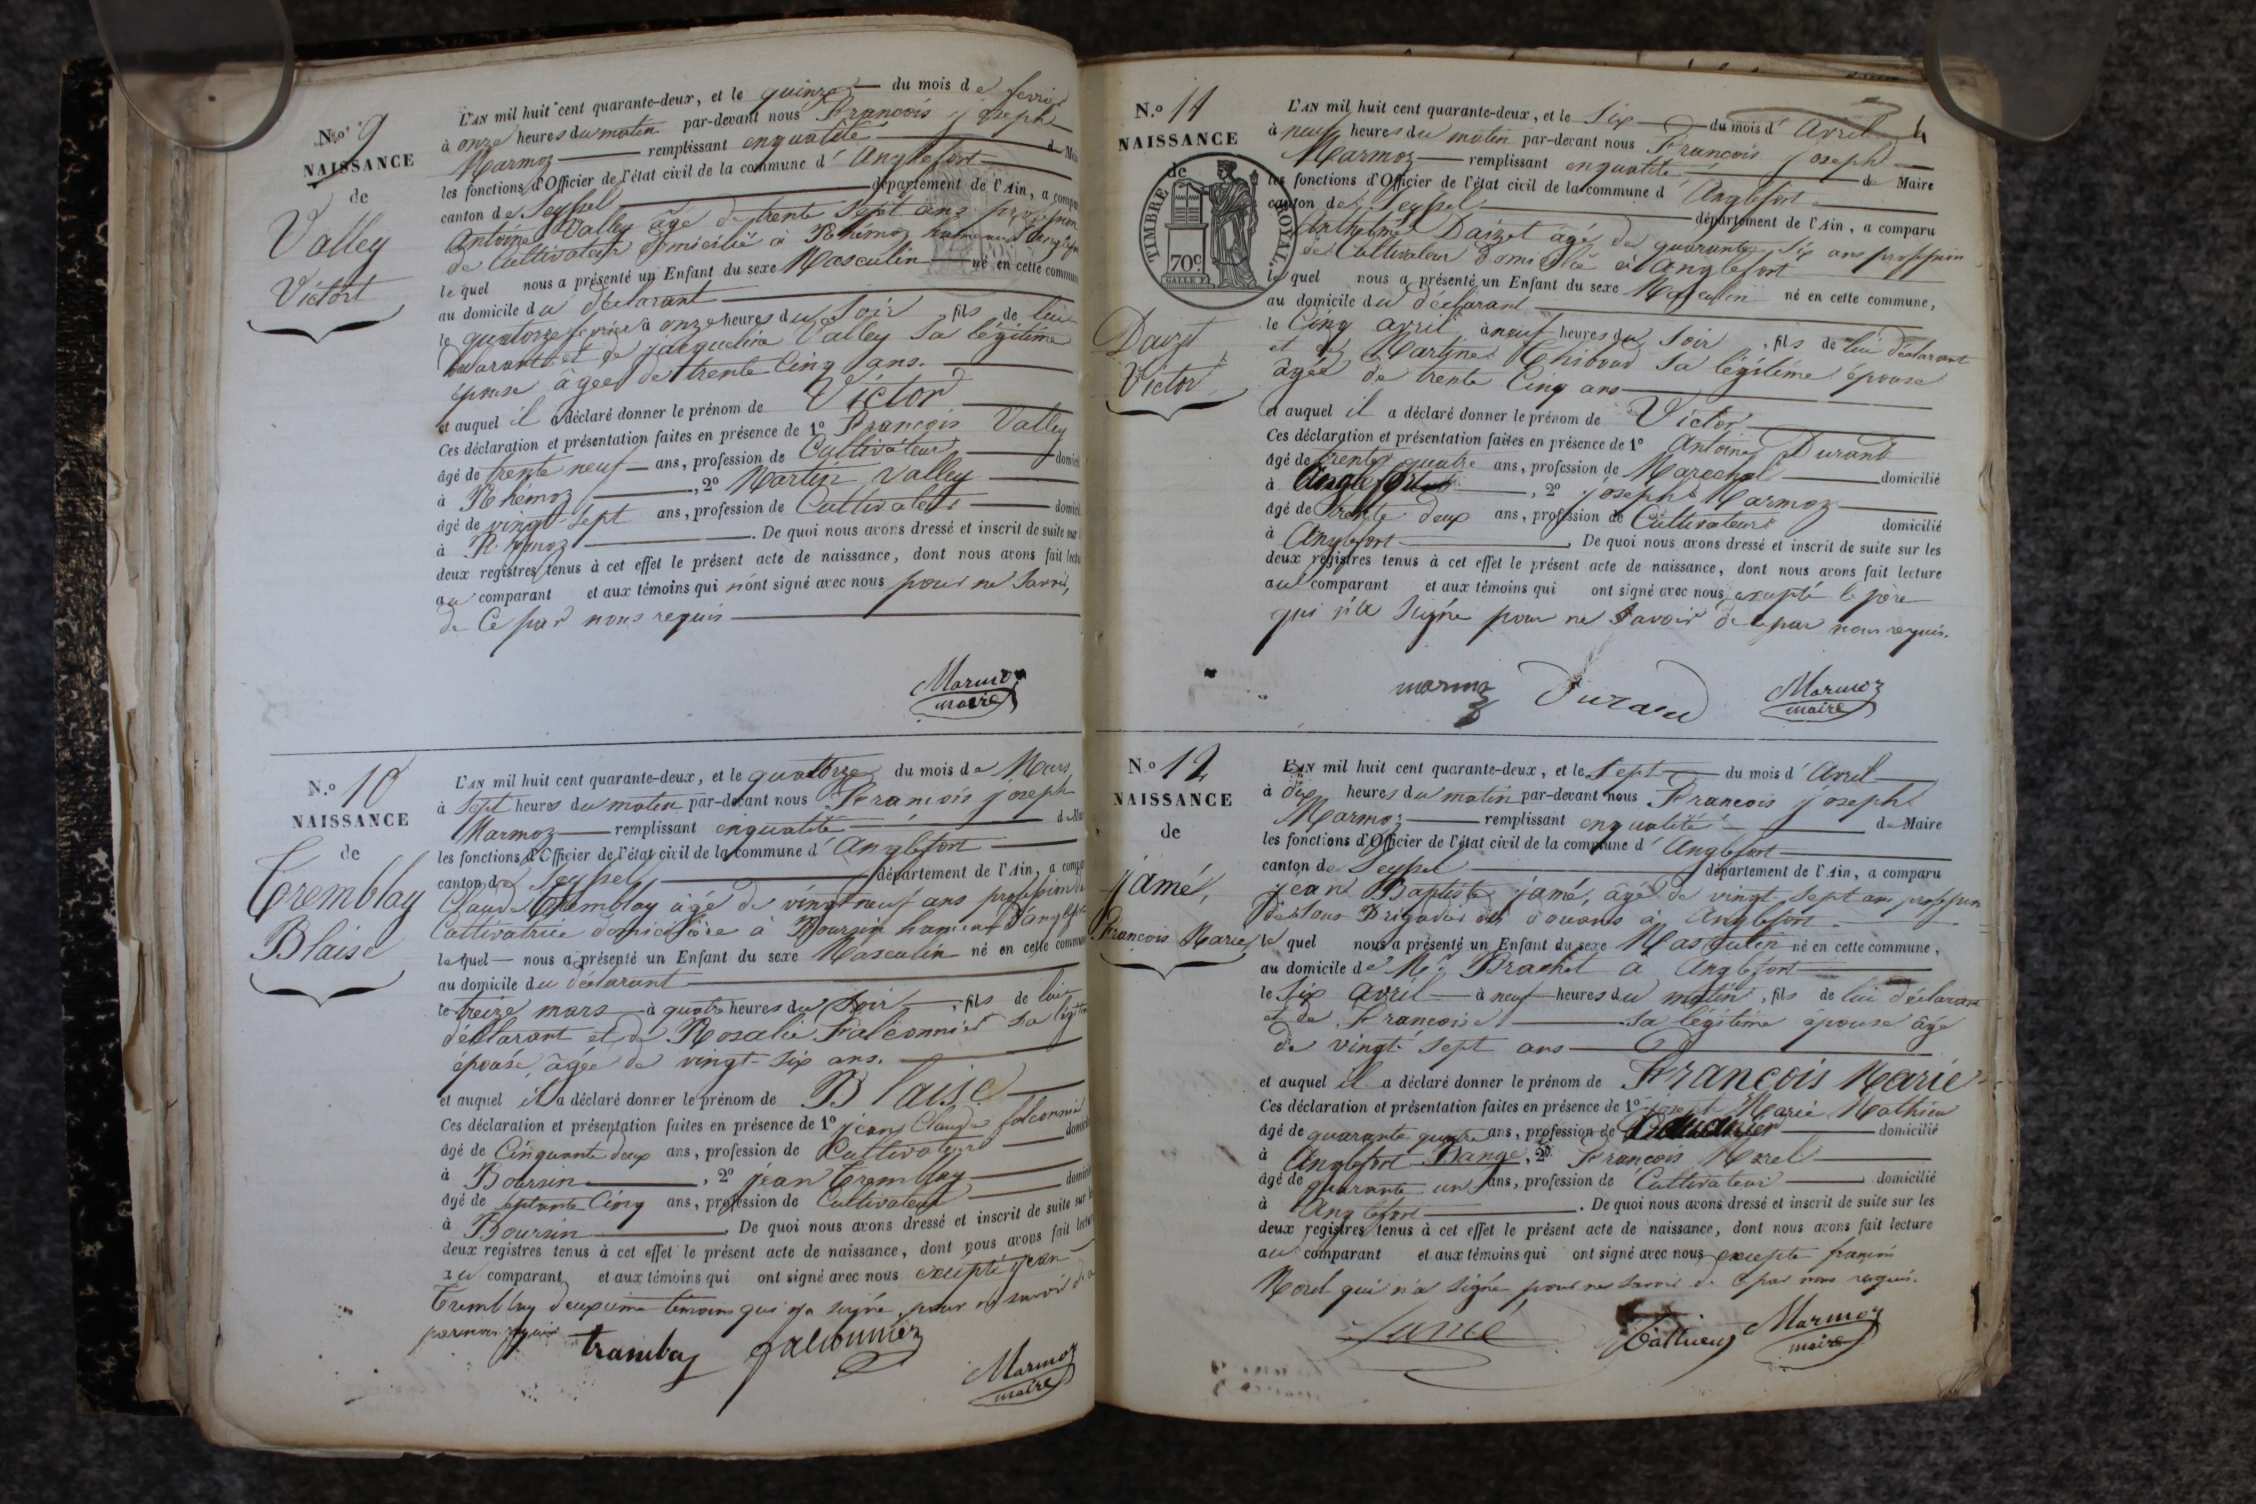 N.o 9
NAISSANCE
de
Valley
Victort
L'AN mil huit cent quarante-deux, et le quinze du mois de fevrier
à onze heures du matin par-devant nous François joseph
Marmoz remplissant enqualité de Maire
les fonctions d'Officier de l'état civil de la commune d' Anglefort
canton de Seyssel département de l'Ain, a comparu
Antoine Valley âgé de trente sept ans profession
de Cultivateur domicilié à Rhémoz hameau d'anglefort
le quel nous a présenté un Enfant du sexe Masculin né en cette commune
au domicile du déclarant
le quatorze fevrier à onze heures du Soir fils de lui
déclarant et de jacqueline Valley sa légitime
épouse âgée de trente Cinq ans.
et auquel il a déclaré donner le prénom de Victor
Ces déclaration et présentation faites en présence de 1o François Valley
âgé de trente neuf ans, profession de Cultivateur domicilié
à Rhémoz, 2o Martin Valley
âgé de vingt Sept ans, profession de Cultivateur domicilié
à Rhémoz. De quoi nous avons dressé et inscrit de suite sur
deux registres tenus à cet effet le présent acte de naissance, dont nous avons fait lecture
au comparant et aux témoins qui n'ont signé avec nous pour ne Savoir,
de Ce par nous requis
Marmoz
maire
N.o 10
NAISSANCE
de
Tremblay
Blaise
L'AN mil huit cent quarante-deux, et le quatorze du mois de Mars
à Sept heures du matin par-devant nous François joseph
Marmoz remplissant enqualité de Maire
les fonctions d'Officier de l'état civil de la commune d' Anglefort
canton de Seyssel département de l'Ain, a comparu
Claude Tremblay âgé de vingt neuf ans profession de
Cultivatrice domiciliaire à Boursin hameau D'anglefort
le quel nous a présenté un Enfant du sexe Masculin né en cette commune
au domicile du déclarant
le treize mars à quatre heures du Soir, fils de lui
déclarant et de Rosalie Falconnier sa légitime
épouse, âgée de vingt-six ans.
et auquel il a déclaré donner le prénom de Blaise
Ces déclaration et présentation faites en présence de 1o jean Claude falconnier
âgé de Cinquante deux ans, profession de Cultivateur domicilié
à Boursin, 2o jean Tremblay
âgé de septante Cinq ans, profession de Cultivateur domicilié
à Boursin. De quoi nous avons dressé et inscrit de suite sur les
deux registres tenus à cet effet le présent acte de naissance, dont nous avons fait lecture
au comparant et aux témoins qui ont signé avec nous excepté jean
Tremblay deuxième temoins qui n'a signé pour ne savoir de ce
par nous requis
trambley falconnier
Marmoz
maire
4
N.o 11
NAISSANCE
de
TIMBRE ROYAL.
70c.
Daizet
Victor
L'AN mil huit cent quarante-deux, et le Six du mois d' Avril
à neuf heures du matin par-devant nous François joseph
Marmoz remplissant enqualité de Maire
les fonctions d'Officier de l'état civil de la commune d' Anglefort
canton de Seyssel département de l'Ain, a comparu
Anthelme Daizet âgé de quarante Six ans profession
de Cultivateur domicilié à Anglefort
le quel nous a présenté un Enfant du sexe Masculin né en cette commune,
au domicile du déclarant
le Cinq avril à neuf heures du Soir, fils de lui déclarant
et de Martine Thiboud sa légitime épouse
âgée de trente Cinq ans
et auquel il a déclaré donner le prénom de Victor
Ces déclaration et présentation faites en présence de 1o Antoine Durand
âgé de trente quatre ans, profession de Marechal domicilié
à Anglefort, 2o joseph Marmoz
âgé de trente deux ans, profession de Cultivateur domicilié
à Anglefort. De quoi nous avons dressé et inscrit de suite sur les
deux registres tenus à cet effet le présent acte de naissance, dont nous avons fait lecture
au comparant et aux témoins qui ont signé avec nous, excepté le père
qui n'a Signé pour ne Savoir de ce par nous requis.
marmoz Durand Marmoz
maire
N.o 12
NAISSANCE
de
jamé,
François Marie
L'AN mil huit cent quarante-deux, et le Sept du mois d' Avril
à dix heures du matin par-devant nous François joseph
Marmoz remplissant enqualité de Maire
les fonctions d'Officier de l'état civil de la commune d' Anglefort
canton de Seyssel département de l'Ain, a comparu
jean Baptiste jamé, âgé de vingt Sept ans profession
de Sous Brigadier des douanes à Anglefort
le quel nous a présenté un Enfant du sexe Masculin né en cette commune,
au domicile de Mr Brachet à Anglefort
le Six avril à neuf heures du matin, fils de lui déclarant
et de Francoise sa légitime épouse âgé
de vingt Sept ans
et auquel il a déclaré donner le prénom de François Marie
Ces déclaration et présentation faites en présence de 1o joseph Marie Mathieu
âgé de quarante quatre ans, profession de Douanier domicilié
à Anglefort, 2o François Morel
âgé de quarante un ans, profession de Cultivateur domicilié
à Anglefort. De quoi nous avons dressé et inscrit de suite sur les
deux registres tenus à cet effet le présent acte de naissance, dont nous avons fait lecture
au comparant et aux témoins qui ont signé avec nous, excepte françois
Morel qui n'a signé pour ne savoir de ce par nous requis.
Jamé Mathieu Marmoz
maire